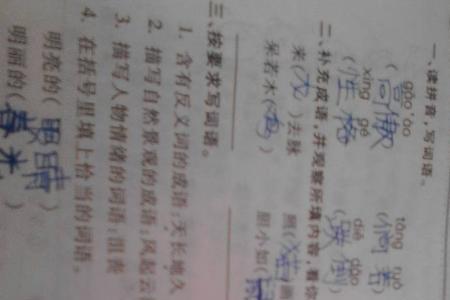 一、读拼音,写词语。
gāo ào tǎng ruò
(高傲) (倘若)
xìng gé diē dǎo
(性格) (跌倒)
二、补充成语,并观察所填内容,看你
来(龙)去脉 照(猫)画
呆若木(鸡) 胆小如(
三、按要求写词语。
1. 含有反义词的成语:天长地久
2. 描写自然景观的成语:风起云
3. 描写人物情绪的词语:沮丧
4. 在括号里填上恰当的词语。
明亮的(眼睛)
明丽的(春水)